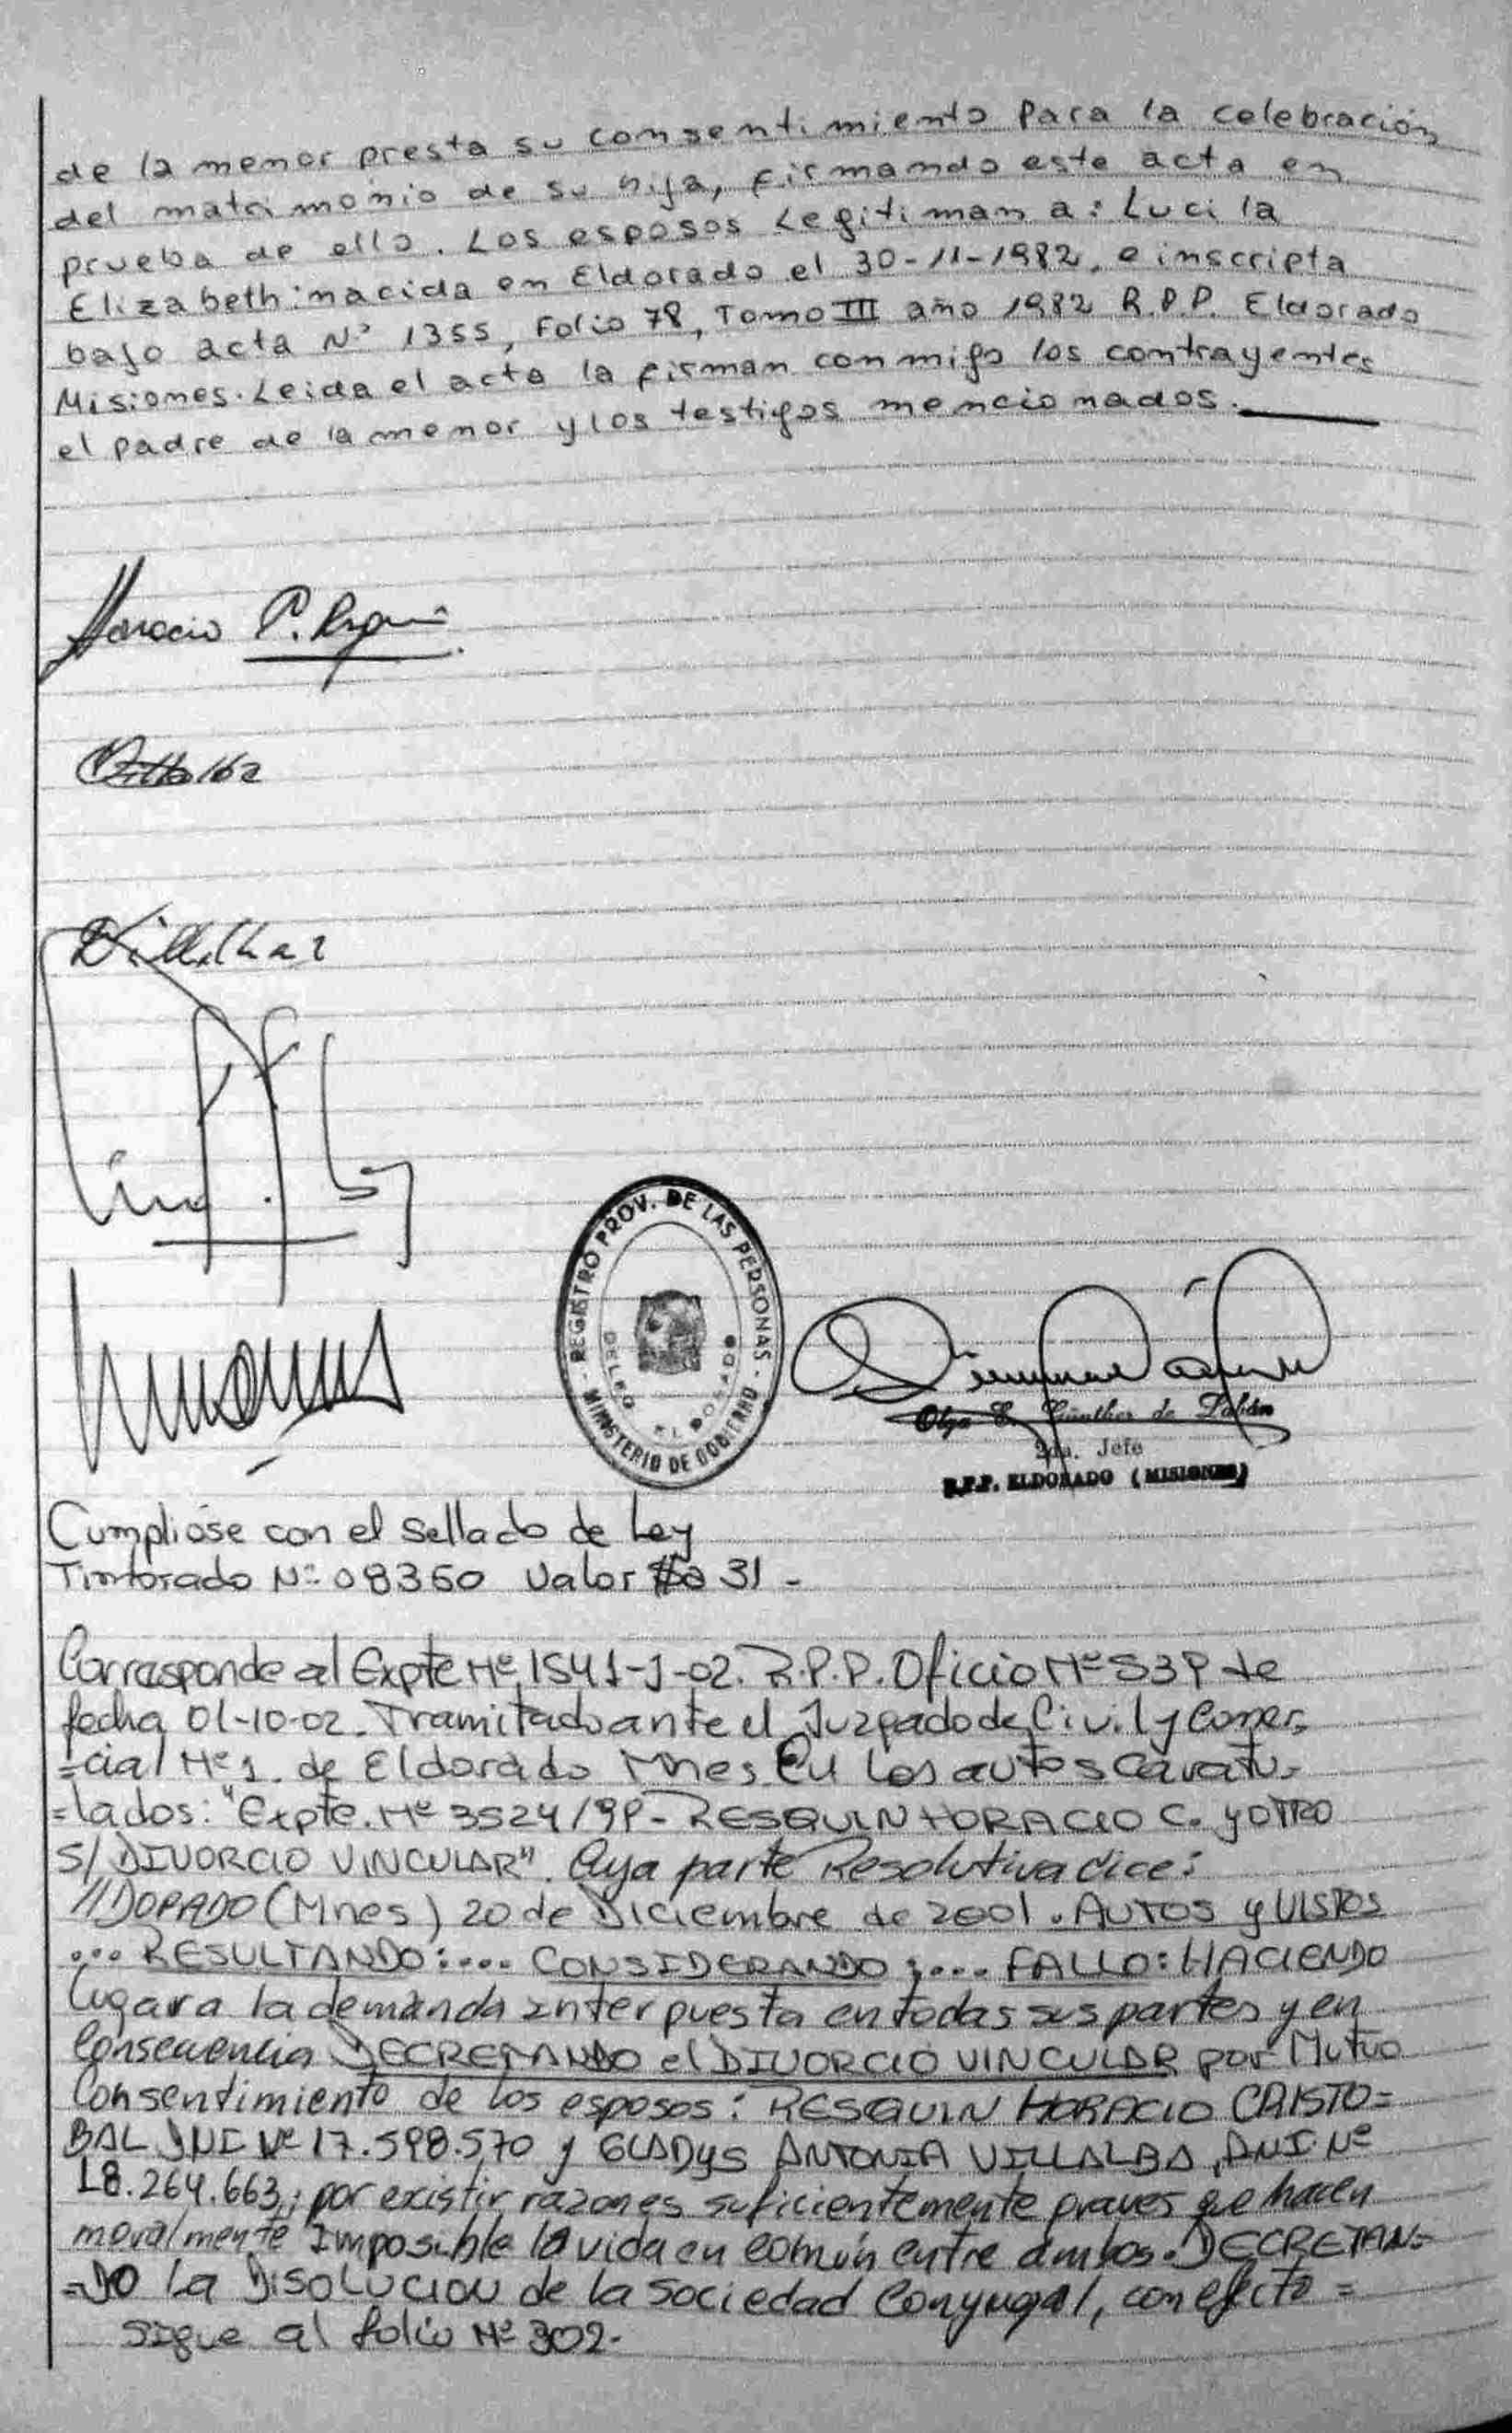 de la menor presta su consentimiento para la celebración
del matrimonio de su hija, firmando este acta en
prueba de ello. Los esposos Legitiman a: Luci la
Elizabeth: nacida en Eldorado el 30-11-1982, e inscripta
bajo acta Nº 1355, Folio 78, Tomo III año 1982 R.P.P. Eldorado
Misiones. Leida el acta la firman conmigo los contrayentes
el padre de la menor y los testigos mencionados.
Horacio C.
Villalba
REGISTRO PROV. DE LAS PERSONAS - MINISTERIO DE GOBIERNO -
ELDORADO
Olga E. Günther de
2da. Jefe
R.P.P. ELDORADO (MISIONES)
Cumplióse con el Sellado de Ley
Timbrado Nº 08360 Valor $a 31 -
Corresponde al Expte Nº 1541-J-02. R.P.P. Oficio Nº 539 de
fecha 01-10-02. Tramitado ante el Juzgado de Civil y Comer,
=cial Nº 1. de Eldorado Mnes. En los autos Caratu,
=lados: "Expte. Nº 3524/99- RESQUIN HORACIO C. y OTRO
S/ DIVORCIO VINCULAR". Cuya parte Resolutiva dice:
//DORADO (Mnes) 20 de Diciembre de 2001. AUTOS y VISTOS
... RESULTANDO:.... CONSIDERANDO:... FALLO: HACIENDO
lugar a la demanda interpuesta en todas sus partes y en
Consecuencia DECRETANDO el DIVORCIO VINCULAR por Mutuo
Consentimiento de los esposos: RESQUIN HORACIO CRISTO=
BAL DNI Nº 17.598.570 y GLADYS ANTONIA VILLALBA, DNI. Nº
18.264.663; por existir razones suficientemente graves que hacen
moralmente Imposible la vida en común entre ambos. DECRETAN=
=DO La DISOLUCION de la Sociedad Conyugal, con efecto =
Sigue al folio Nº 302.